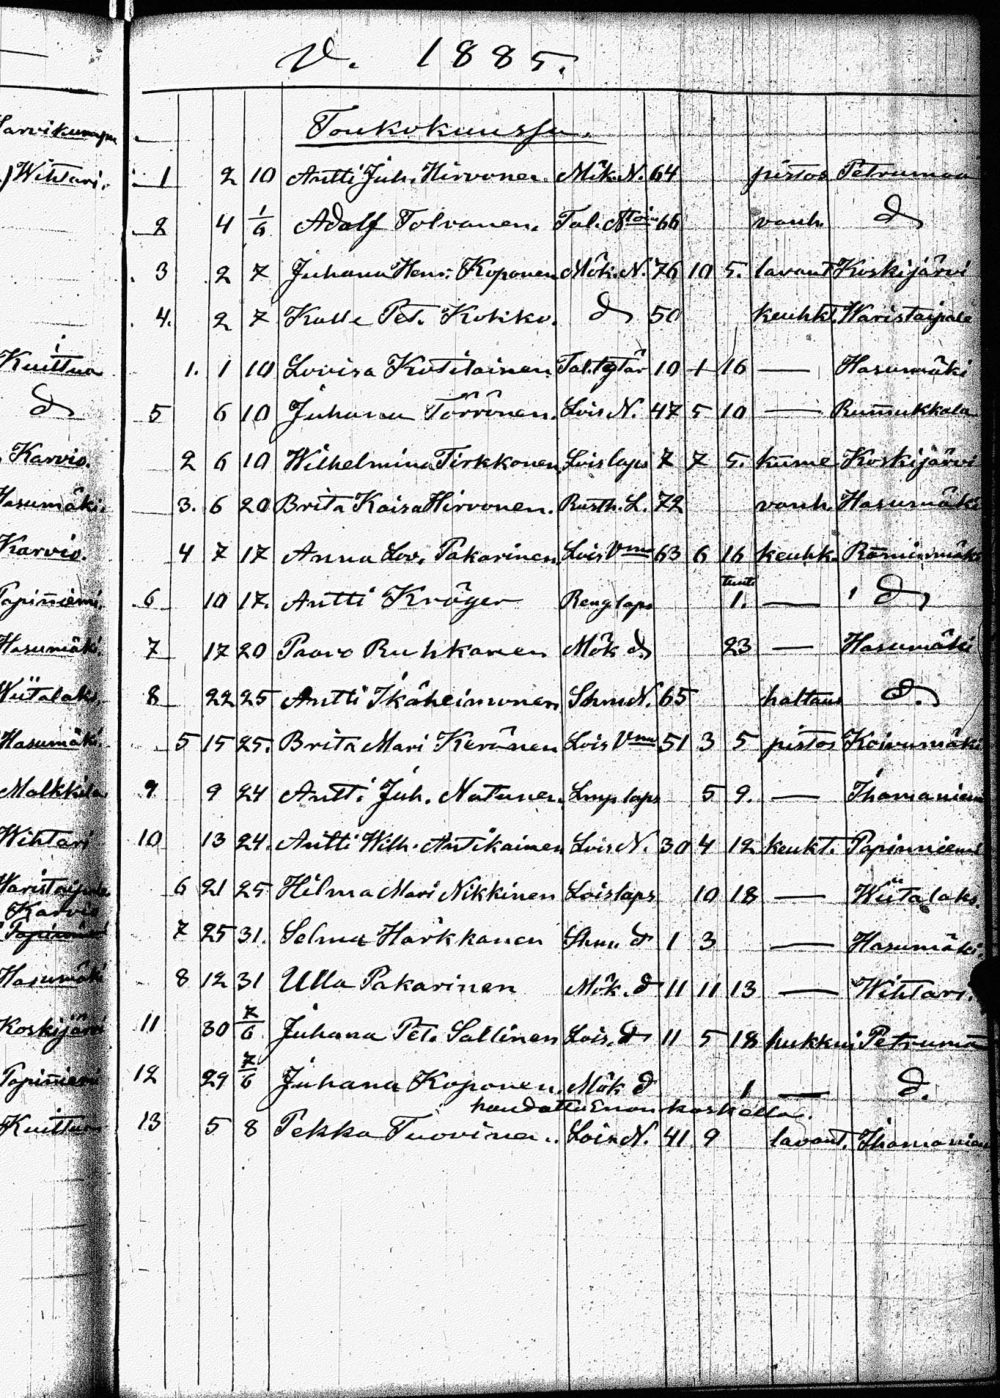 V. 1885.
Toukokuussa.
Wihtari. 1 2 10 Antti Juh. Hirvonen. Mök. N. 64 pistos Petrumaa
2 4 1/6 Adolf Tolvanen. Tal. 66 vanh. d
3 2 7 Juhana Henr. Koponen Mök. N. 76 10 5. lavant Koskijärvi
4. 2 7 Kalle Pet. Kokko. d 50 keuhkt. Waristaipale
Kuittua 1. 1 10 Lovisa Kotilainen Tal. tytär 10 1 16 — Hasumäki
d 5 6 10 Juhana Törrönen. Lois N. 47 5 10 — Rummukkala
Karvio. 2 6 10 Wilhelmina Tirkkonen Lois laps 7 7 5. kume Koskijärvi
Hasumäki. 3. 6 20 Brita Kaisa Hirvonen. Rusth. L. 72 vanh. Hasumäki
Karvio. 4 7 17 Anna Lov. Pakarinen Lois Vmo 63 6 16 keuhk.
Papinniemi. 6 10 17. Antti Kröger Reng laps tunt. 1. — d
Hasumäki. 7 17 20 Paavo Ruhkanen Mök d 23 — Hasumäki
Wiitalaks. 8 22 25 Antti Ikäheimonen N. 65 haltaus d.
Hasumäki. 5 15 25. Brita Mari Keränen Lois Vmo 51 3 5 pistos Koivumäki
Malkkila 9. 9 24 Antti Juh. Natunen. laps 5 9. — Ihamaniemi
Wihtari 10 13 24. Antti Wilh. Antikainen Lois N. 30 4 12 keukt. Papinniemi
Waristaipale 6 21 25 Hilma Mari Nikkinen Lois laps 10 18 — Wiitalaks.
Karvio
Papinniemi 7 25 31. Selma Härkkanen d 1 3 — Hasumäki.
Hasumäki 8 12 31 Ulla Pakarinen Mök. d 11 11 13 — Wihtari.
Koskijärvi 11 30 7/6 Juhana Pet. Sallinen Lois. d 11 5 18 hukkui Petrumaa
Papinniemi 12 29 7/6 Juhana Koponen. Mök d 1 — d.
haudattu Enon koskella.
Kuittua 13 5 8 Pekka Tuovinen. Lois N. 41 9 lavant. Ihamaniemi